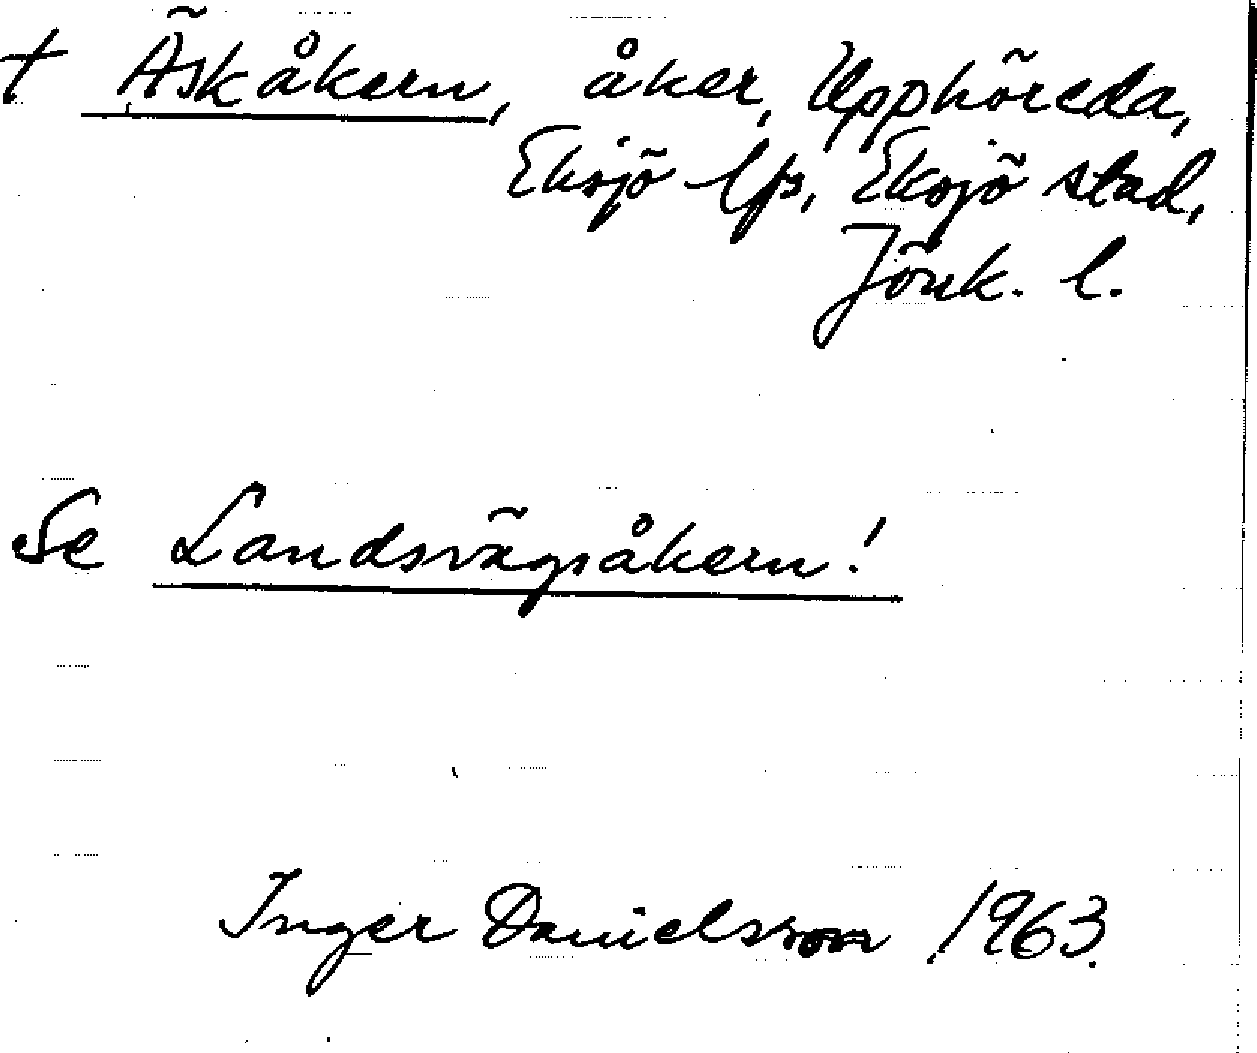 † Äskåkern, åker, Upphöreda,
Eksjö lfs, Eksjö stad,
Jönk. l.
Se Landsvägsåkern!
Inger Danielsson 1963.